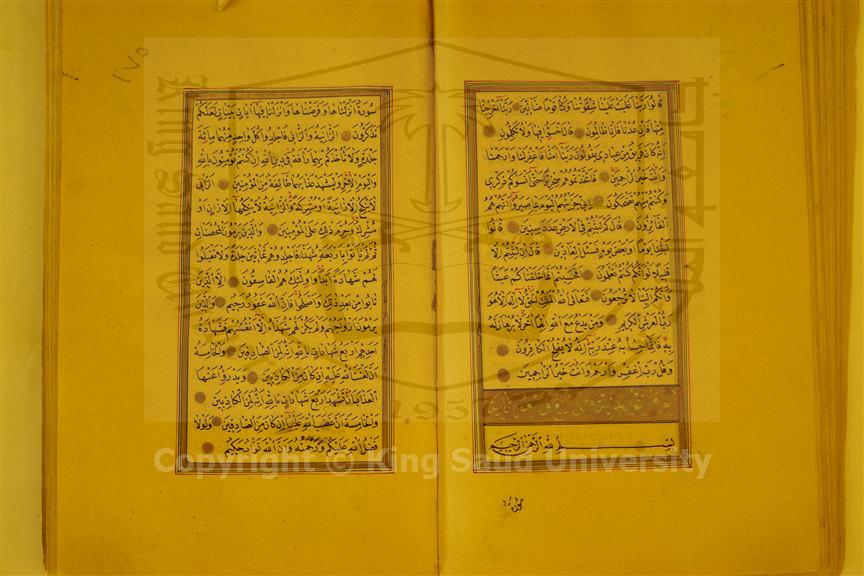 قالوا ربنا غلبت علينا شقوتنا وكنا قوما ضالين ربنا اخرجنا
منها فان عدنا فانا ظالمون قال اخسؤا فيها ولا تكلمون
انه كان فريق من عبادي يقولون ربنا امنا فاغفر لنا وارحمنا
وانت خير الراحمين فاتخذتموهم سخريا حتى انسوكم ذكري
وكنتم منهم تضحكون اني جزيتهم اليوم بما صبروا انهم هم
الفائزون قال كم لبثتم في الارض عدد سنين قالوا
لبثنا يوما او بعض يوم فسئل العادين قال ان لبثتم الا
قليلا لو انكم كنتم تعلمون افحسبتم انما خلقناكم عبثا
وانكم الينا لا ترجعون فتعالى الله الملك الحق لا اله الا هو
رب العرش الكريم ومن يدع مع الله الها اخر لا برهان له
به فانما حسابه عند ربه انه لا يفلح الكافرون
وقل رب اغفر وارحم وانت خير الراحمين
بسم الله الرحمن الرحيم
سورة
١٧٥
سورة انزلناها وفرضناها وانزلنا فيها ايات بينات لعلكم
تذكرون الزانية والزاني فاجلدوا كل واحد منهما مائة
جلدة ولا تأخذكم بهما رأفة في دين الله ان كنتم تؤمنون بالله
واليوم الاخر وليشهد عذابهما طائفة من المؤمنين الزاني
لا ينكح الا زانية او مشركة والزانية لا ينكحها الا زان او
مشرك وحرم ذلك على المؤمنين والذين يرمون المحصنات
ثم لم يأتوا باربعة شهداء فاجلدوهم ثمانين جلدة ولا تقبلوا
لهم شهادة ابدا واولئك هم الفاسقون الا الذين
تابوا من بعد ذلك واصلحوا فان الله غفور رحيم والذين
يرمون ازواجهم ولم يكن لهم شهداء الا انفسهم فشهادة
احدهم اربع شهادات بالله انه لمن الصادقين والخامسة
ان لعنت الله عليه ان كان من الكاذبين ويدرؤا عنها
العذاب ان تشهد اربع شهادات بالله انه لمن الكاذبين
والخامسة ان غضب الله عليها ان كان من الصادقين ولولا
فضل الله عليكم ورحمته وان الله تواب حكيم
1957
Copyright © King Saud University